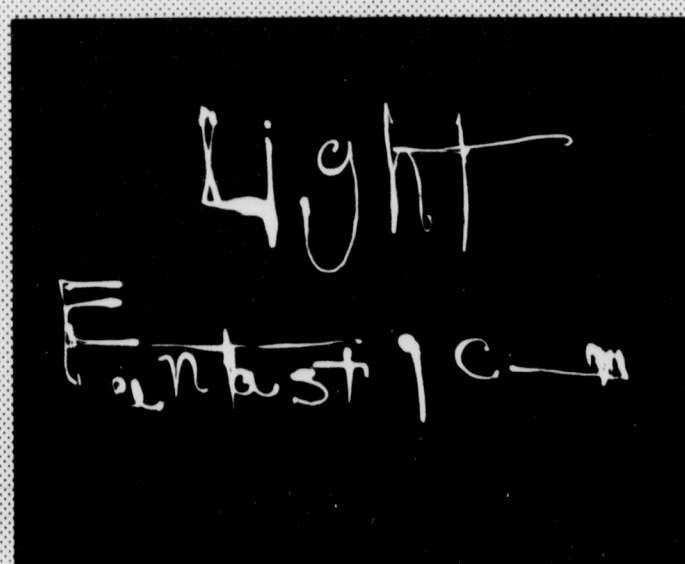 Light
Fantastic